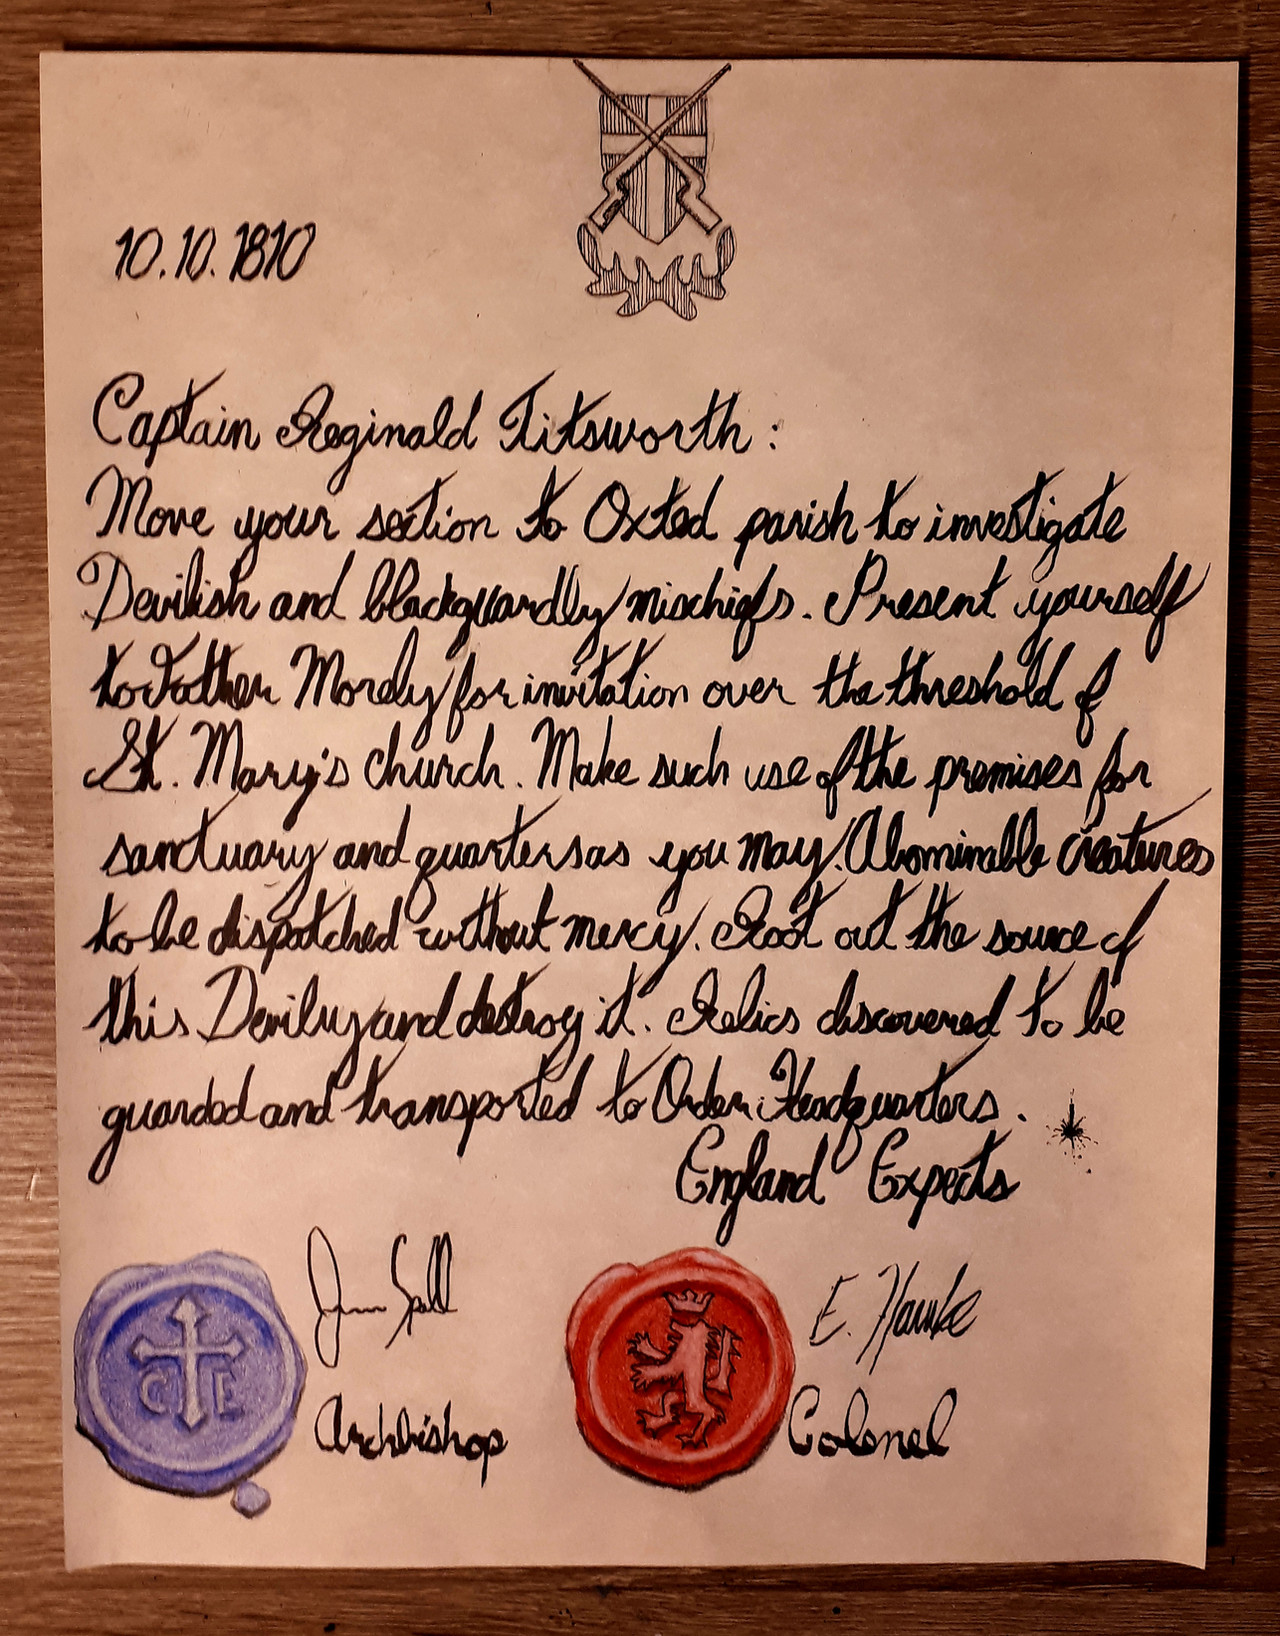 10.10.1810
Captain Reginald Titsworth:
Move your section to Oxted parish to investigate
Devilish and blackguardly mischiefs. Present yourself
to Father Morely for invitation over the threshold of
St. Mary's church. Make such use of the premises for
sanctuary and quarters as you may. Abominable creatures
to be dispatched without mercy. Root out the source of
this Devilry and destroy it. Relics discovered to be
guarded and transported to Order Headquarters.
England Expects
E. Hawke
C E
Archbishop
Colonel